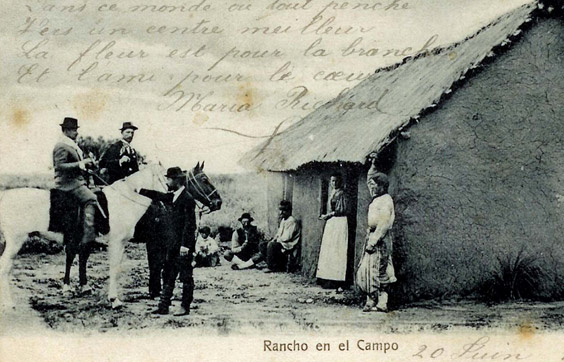 Dans ce monde ou tout penche
Vers un centre meilleur
La fleur est pour la branche
Et l'ami pour le cœur
Maria Richard
Rancho en el Campo
20 Juin